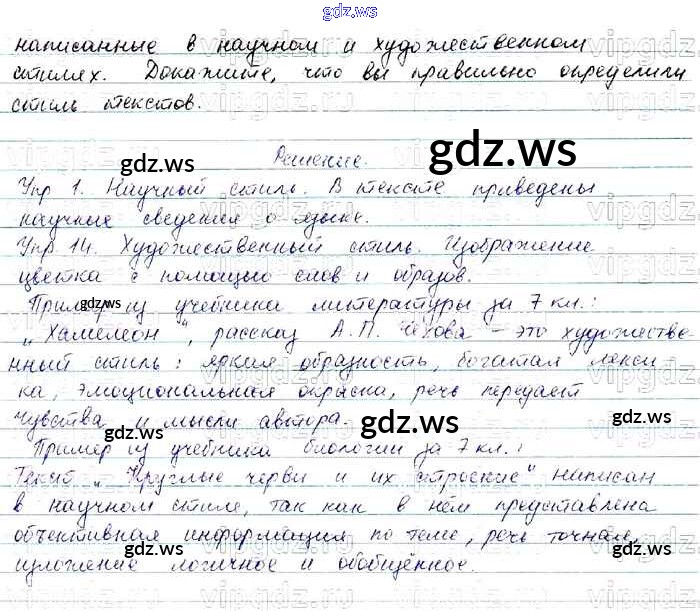 gdz.ws
написанные в научном и художественном
стилях. Докажите, что вы правильно определили
стиль текстов.
gdz.ws gdz.ws
Решение.
Упр 1. Научный стиль. В тексте приведены
научные сведения о языке.
Упр 14. Художественный стиль. Изображение
цветка с помощью слов и образов.
gdz.ws
Пример из учебника литературы за 7 кл.:
„Хамелеон", рассказ А.П. Чехова – это художестве-
нный стиль: яркая образность, богатая лекси
ка, эмоциональная окраска, речь передаёт
gdz.ws gdz.ws
чувства и мысли автора.
gdz.ws
Пример из учебника биологии за 7 кл.:
Текст „Круглые черви и их строение" написан
в научном стиле, так как в нём представлена
объективная информация по теме, речь точная,
gdz.ws gdz.ws
изложение логичное и обобщённое.